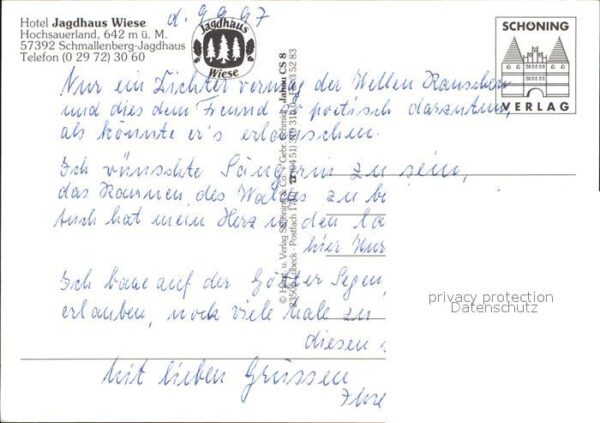 Hotel Jagdhaus Wiese
Hochsauerland, 642 m ü. M.
57392 Schmallenberg-Jagdhaus
Telefon (0 29 72) 30 60
d. 9.9.97
Jagdhaus
Wiese
SCHÖNING
VERLAG
Nur ein Dichter vermag der Wellen Rauschen
und dies dem Freund poetisch darzutun,
als könnte er's erlauschen.
Ich wünschte Sängerin zu sein,
das Raunen des Waldes zu
Auch hat mein Herz in den
hier
Ich baue auf der Götter Segen,
erlauben, noch viele Male zu
diesen
Mit lieben Grüssen
privacy protection
Datenschutz